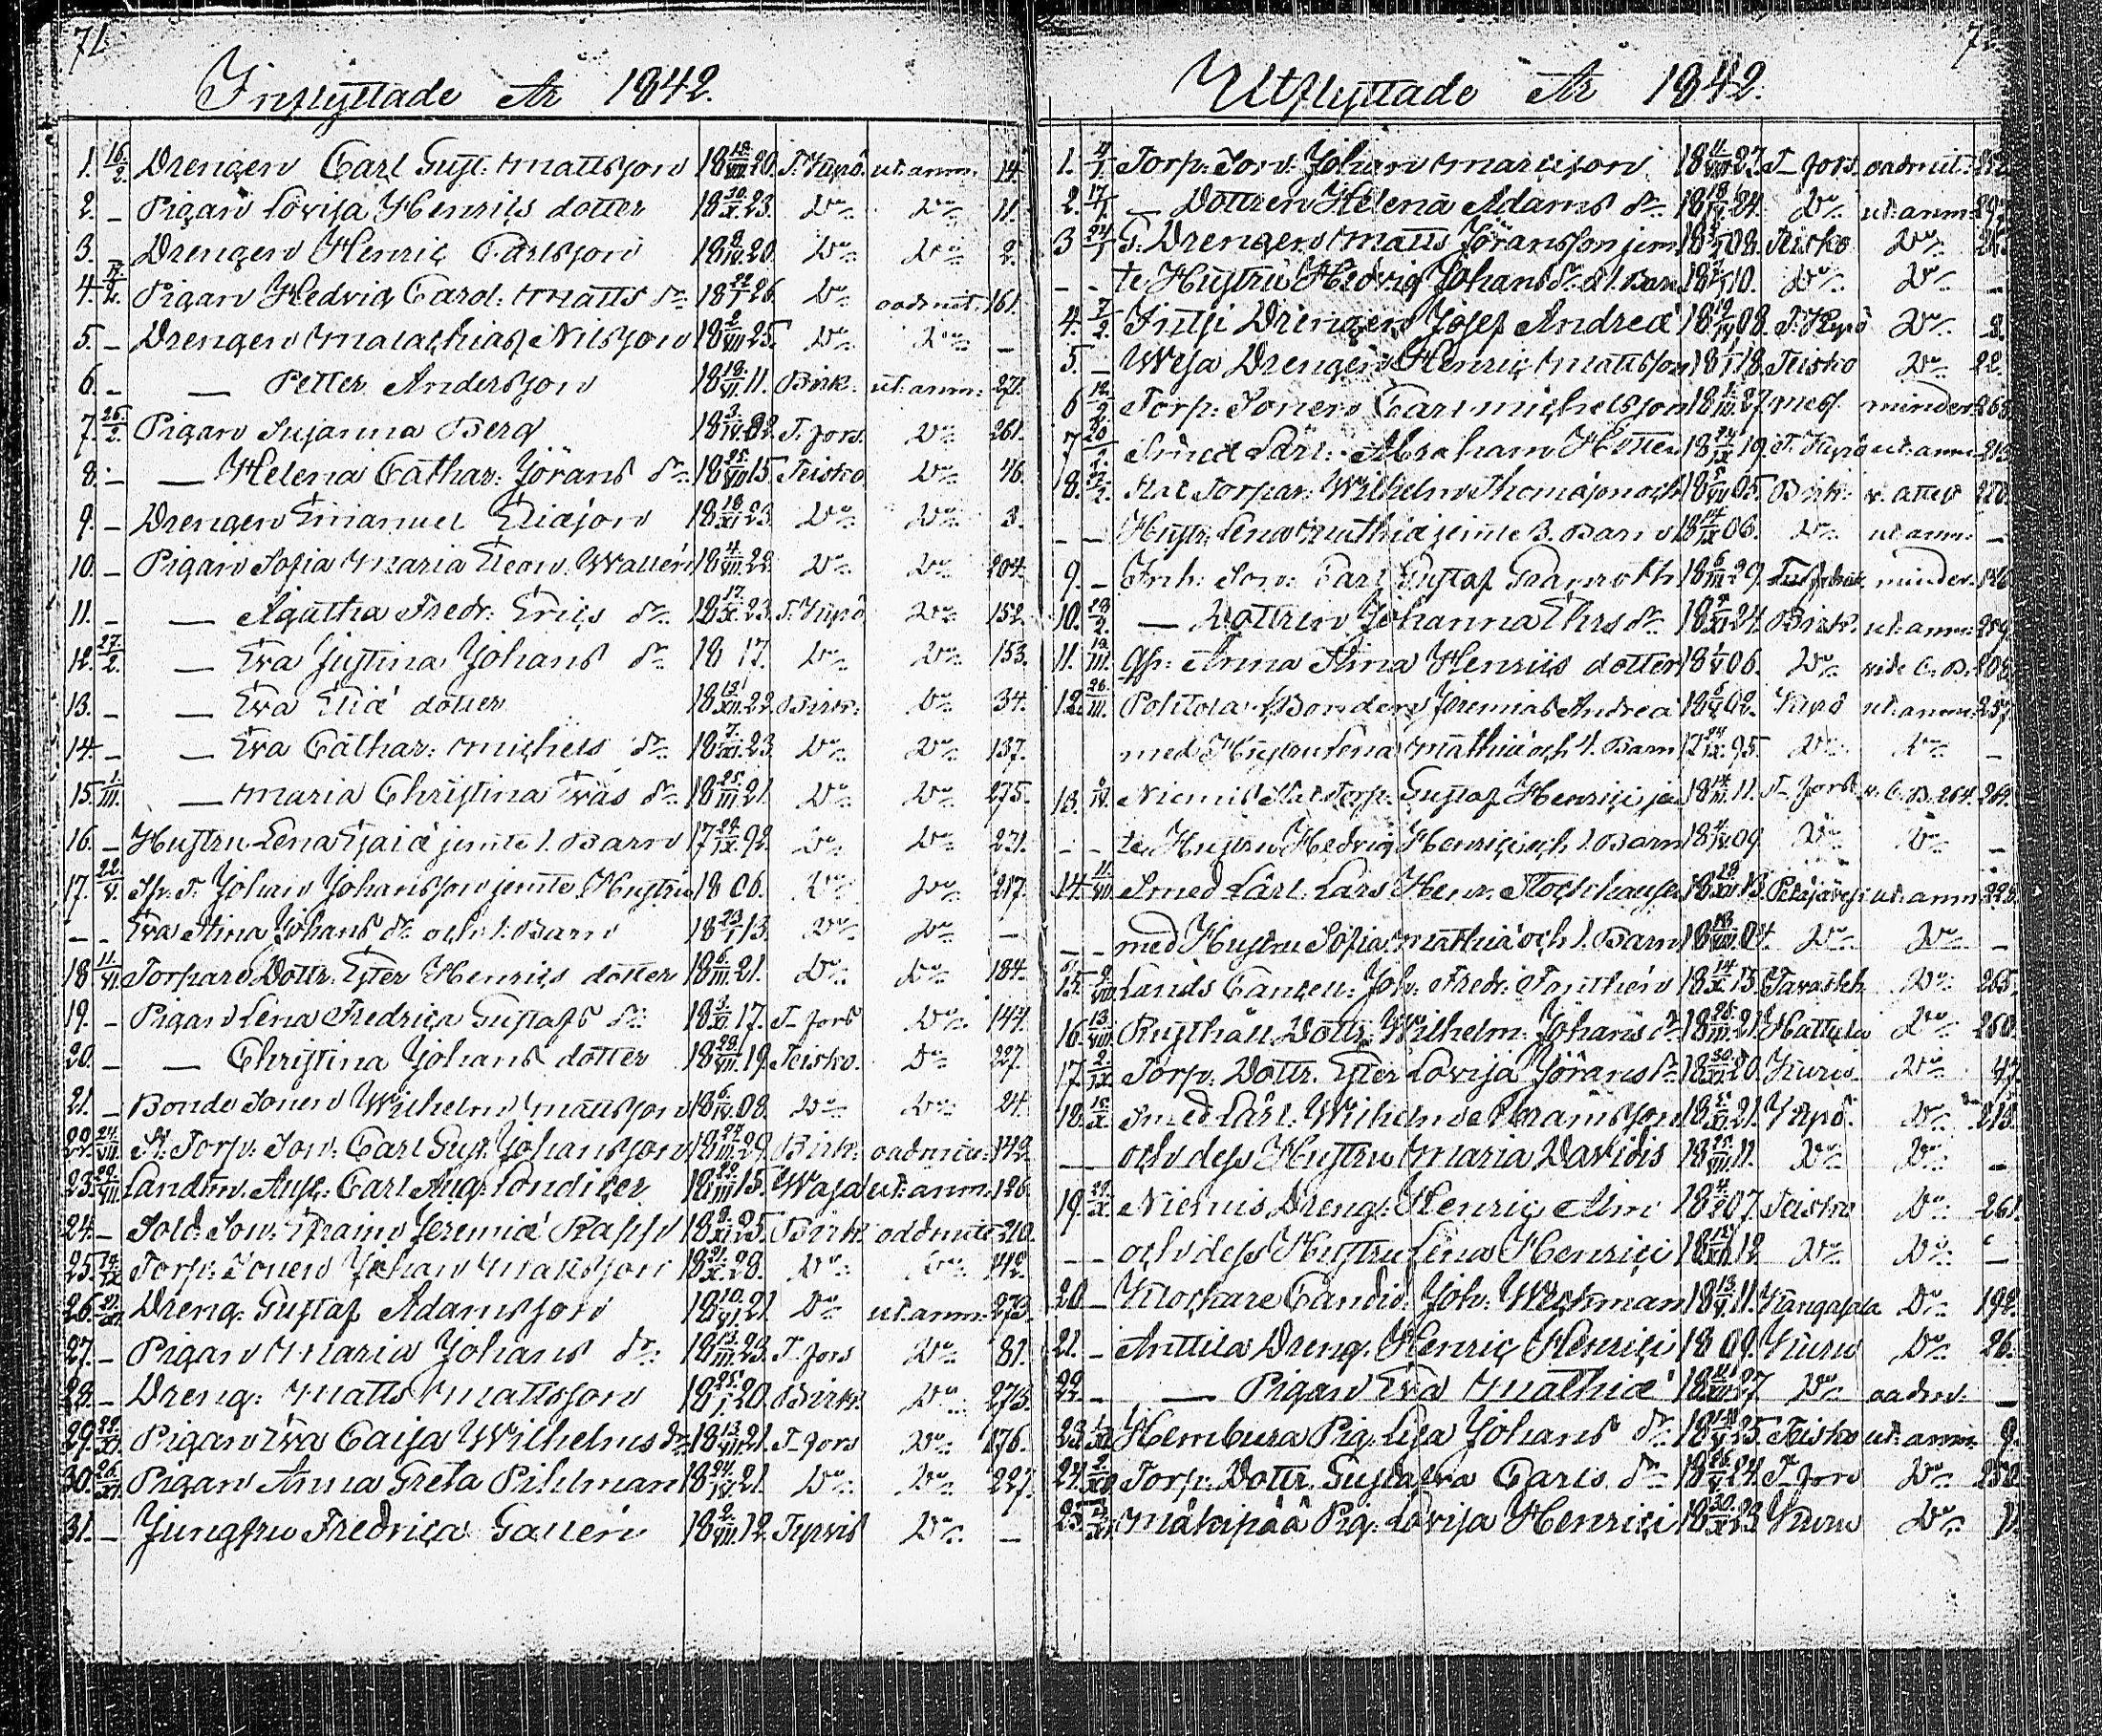 71.
Inflyttade År 1842.
1. 16/2. Drengen Carl Gust: Mattsson 18 20. T. Kyrö. ut. anm. 14.
2. – Pigan Lovisa Henrics dotter 18 30/X. 23. Do Do 11.
3. Drengen Henric Carlsson 18 20. Do Do 2.
4. Pigan Hedvig Carol: Matts dr 18 26. Do oadmit: 161.
5. – Drengen Malachias Nilsson 18 2/VII 25. Do Do –
6. – — Petter Andersson 18 VI. 11. Birk: ut: anm: 271.
7. 26/2. Pigan Susanna Berg 18 3/IV. 02. T. Jors. Do 261.
8. – — Helena Cathar: Jörans dr 18 25 15. Teisko Do 46.
9. – Drengen Emanuel Eliasson 18 18/XI 23. Do Do 3.
10. – Pigan Sofia Maria Eleon. Wallén 18 22 Do Do 204.
11. – — Agatha Fredr: Erics dr 18 17/X. 23. T. Kyrö Do 152.
12. 27/2. — Eva Justina Johans dr 18 17. Do Do 153.
13. – — Eva Eliæ dotter 18 13/XII. 22. Birk: Do 34.
14. – — Eva Cathar: Michels dr 18 7/XI. 23. Do Do 137.
15. 1/III. — Maria Christina Evas dr 18 25/III 21. Do Do 275.
16. – Hustru Lena Esaiæ jemte 1. Barn 17 29/IX. 92. Do Do 231.
17. 22/V. Johan Johansson jemte Hustru 18 06. Do Do 217.
– – Eva Stina Johans dr och 1. Barn 18 23/1 13. Do Do –
18 11/VI. Torpare Dottr. Ester Henrics dotter 18 III 21. Do Do 184.
19. – Pigan Lena Fredrica Gustafs dr 18 3/XI. 17. T. Jors Do 144.
20. – — Christina Johans dotter 18 28/VII. 19. Teisko. Do 227.
21. – Bonde Sonen Wilhelm Mattsson 18 6/IV. 08. Do Do 24.
22. 24/VII. St. Torp. Son: Carl Gust. Johansson 18 29. Birk: oadmit: 142.
23. 29/VII. Landtm. Ausc: Carl Aug: Londicer 18 III 15. Wasa ut: anm: 126.
24. – Sold. Son: Efraim Jeremiæ Rask 18 XI 25. Birk: oadmit 210.
25. 19/IX Torp: Sonen Johan Mattsson 18 21/X. 28. Do Do 242.
26. Dreng: Gustaf Adamsson 18 10/VI. 21. Do ut. anm: 273.
27. – Pigan Maria Johans dr 18 13/III. 23. T. Jors Do 81.
28. – Dreng: Matts Mattsson 18 25/1. 20. Birk: Do 273.
29. Pigan Eva Caisa Wilhelms dr 18 13/VII. 21. T. Jors Do 176.
30. 26/XI. Pigan Anna Greta Pihlman 18 24/IV. 21. Do Do 227.
31. – Jungfru Fredrica Gallén 18 2/VII. 12. Tyrvis Do –
Utflyttade År 1842.
1. Torp: Son. Johan Mattsson 18 27. T. Jors. oadmit:
2. 17/1 Dottren Helena Adams dr 18 24. Do ut: anm:
3 24/1 Drengen Matts Jöransson jem 18 08. Teisko Do
– – te Hustru Hedvig Johans dr & 1. Barn 18 10. Do Do –
4. 7/2. Drengen Josef Andreæ 18 08. T. Kyrö Do 8.
5. – Drengen Henric Mattsson 18 18. Teisko Do 22.
6 12/2. Torp: Sonen Carl Michelsson 18 27. minder.
7 20/2. Smed Lärl: Abraham Hellen 18 24/IX 19. T. Kyrö ut: anm:
8. 22/2. Stat Torpar. Wilhelm Thomasson och 18 05. Birk: v. attest
– – Hustr. Lena Mathiæ jemte 3. Barn 18 14/IX 06. Do ut anm: –
9. – Inh: Son: Carl Gustaf 18 6/III 29. minder:
10. 28/2. — Dottren Johanna Ehrs dr 18 24. Birk. ut: anm: 259.
11. Anna Stina Henrics dotter 18 1/V 06. Do vide C. B. 208.
12. 26/III. Bonden Jeremias Andreæ 18 02. Kyrö ut: anm: 257.
med Hustru Lena Mathiæ och 4. Barn 17 24/IX. 95. Do Do –
13. Niemis Stat Torp: Gustaf Henrici jem 18 11. T. Jors v. C. B. 264. 264.
– – te Hustru Hedvig Henrici och 1. Barn 18 09 Do Do –
14. 11/VII Smed Lärl: Lars Henr. 18 13. ut: anm: 225.
– – med Hustru Sofia Mathiæ och 1. Barn 18 04. Do Do –
15. Lands Cancell: Joh: Fredr: 18 14/X 15. Tavasteh Do 265.
16. 13/VIII Rusthåll. Dottr. Wilhelm: Johans dr 18 21. Hattula Do 260.
17. 2/IX Torp: Dottr. Ester Lovisa Jörans dr 18 30/XI 20. Kuru. Do 47.
18. 15/X. Smed Lärl. Wilhelm Abramsson 18 21. Kyrö. Do 213.
— och dess Hustru Maria Davidis 18 25/VIII 11. Do Do –
19. Niemis Dreng: Henric Alm 18 07. Teisko Do 261.
– – och dess Hustru Lena Henrici 18 12. Do Do –
20. – Klockare Candid: Joh: Weckman 18 13/V. 11. Kangasala Do 192.
21. – Anttila Dreng: Henric Henrici 18 09. Kuru Do 26.
22. – — Pigan Eva Mathiæ 18 27 Do oadm. –
23. Hembura Pig. Lisa Johans dr 18 25. Teisko ut: anm: 9.
24. Torp: Dottr. Gustava Carls dr 18 26/V. 24. T. Jors Do 250.
25. Mäkipää Pig. Lovisa Henrici 18 30/X. 23. Kuru Do 11.